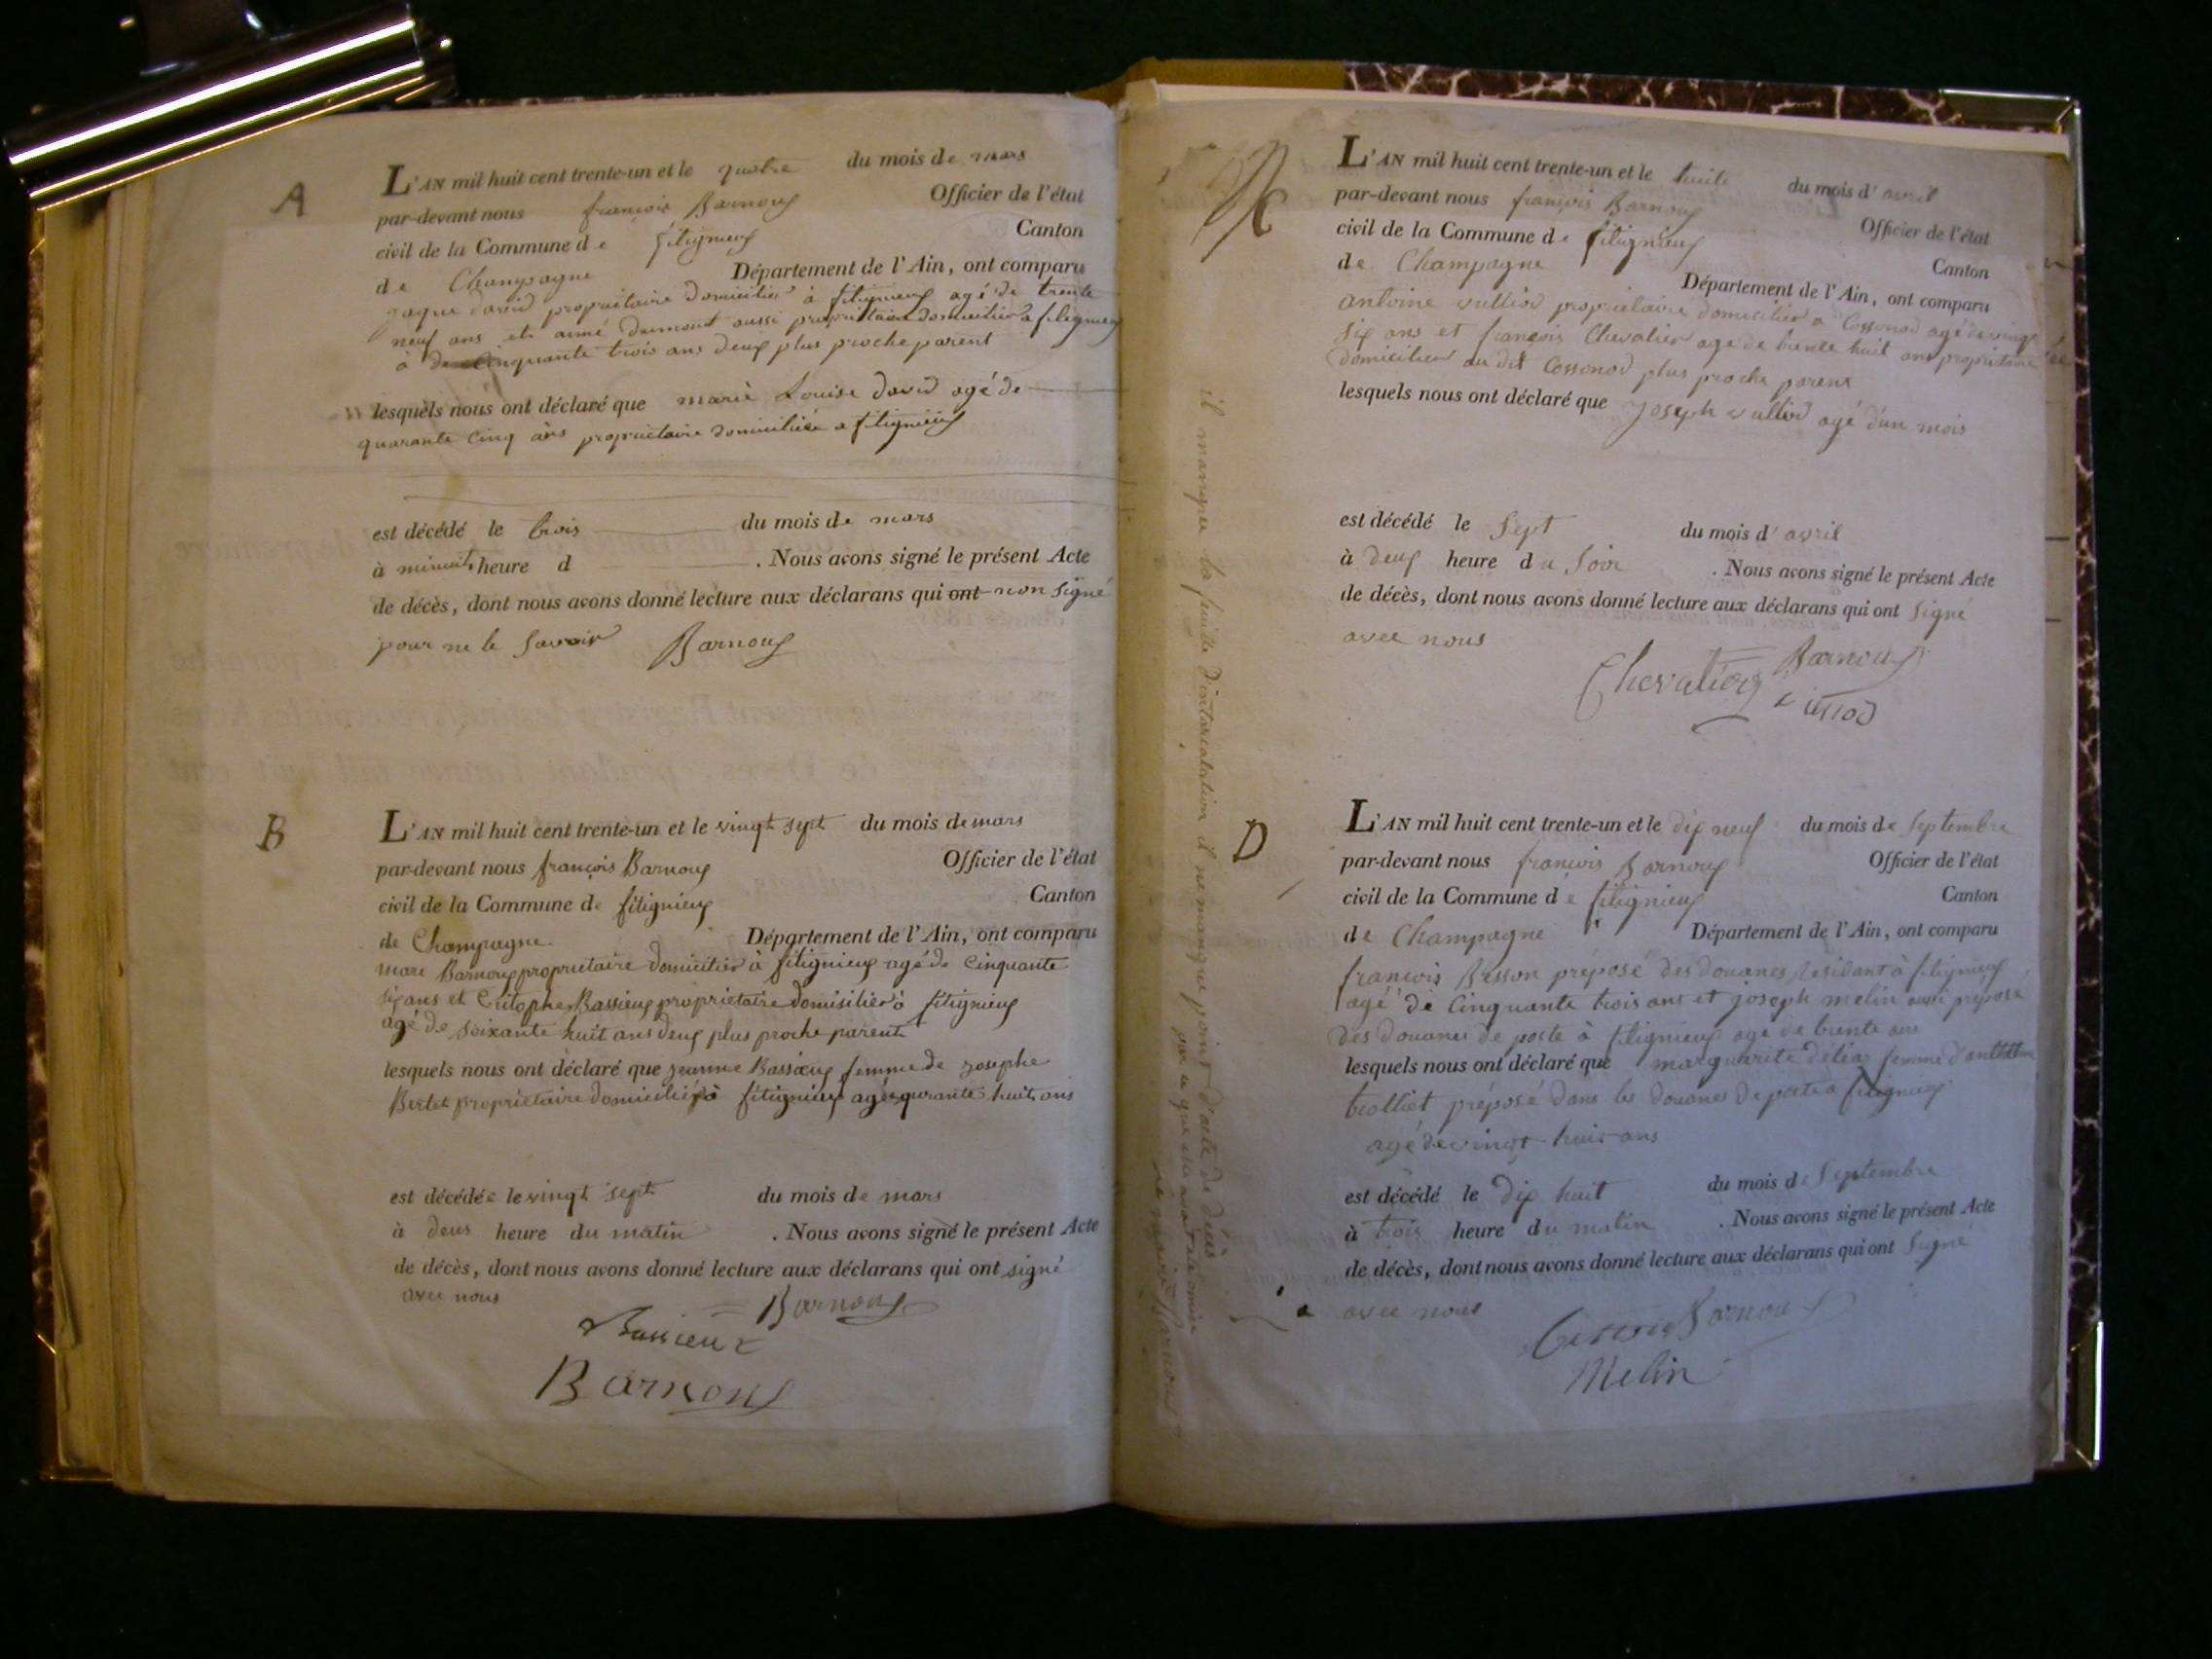 A
L'AN mil huit cent trente-un et le quatre du mois de mars
par-devant nous françois Barnoux Officier de l'état
civil de la Commune de fitignieux Canton
de Champagne Département de l'Ain, ont comparu
jaque david proprietaire domicilier à fitignieux agé de trente
neuf ans et aimé dumont aussi proprietaire domicilier a fitignieux
à de cinquante trois ans deux plus proche parent
lesquels nous ont déclaré que marie Louise david agé de
quarante cinq ans proprietaire domiciliée a fitignieux
est décédé le trois du mois de mars
à minuit heure d . Nous avons signé le présent Acte
de décès, dont nous avons donné lecture aux déclarans qui ont non signé
pour ne le savoir Barnoux
B
L'AN mil huit cent trente-un et le vingt sept du mois de mars
par-devant nous françois Barnoux Officier de l'état
civil de la Commune de fitignieux Canton
de Champagne Département de l'Ain, ont comparu
marc Barnoux proprietaire domicilier à fitignieux agé de cinquante
six ans et Critophe Bassieux proprietaire domisilier à fitignieux
agé de soixante huit ans deux plus proche parent
lesquels nous ont déclaré que jeanne Bassieux femme de josephe
Bertet proprietaire domicilié à fitignieux agé quarante huit ans
est décédée le vingt sept du mois de mars
à deus heure du matin . Nous avons signé le présent Acte
de décès, dont nous avons donné lecture aux déclarans qui ont signé
avec nous Barnoux
Bassieux
Barnoux
il manque la feuille d'intercalation il ne manque point d'acte de décès
par ce que
le maire Barnoux
C
L'AN mil huit cent trente-un et le huite du mois d'avril
par-devant nous françois Barnoux Officier de l'état
civil de la Commune de fitignieux Canton
de Champagne Département de l'Ain, ont comparu
antoine vulliod proprietaire domicilier a Cossonod agé de vingt
six ans et françois Chevalier age de trente huit ans proprietaire
domicilier au dit Cossonod plus proche parent
lesquels nous ont déclaré que joseph vulliod agé d'un mois
est décédé le sept du mois d'avril
à deux heure du soir . Nous avons signé le présent Acte
de décès, dont nous avons donné lecture aux déclarans qui ont signé
avec nous
Chevalier Barnoux
D
L'AN mil huit cent trente-un et le dix neuf du mois de septembre
par-devant nous françois Barnoux Officier de l'état
civil de la Commune de fitignieux Canton
de Champagne Département de l'Ain, ont comparu
françois Besson préposé des douanes résidant à fitignieux
agé de cinquante trois ans et joseph melin aussi préposé
des douanes de poste à fitignieux agé de trente ans
lesquels nous ont déclaré que marguerite femme
trolliet préposé dans les douanes de poste a fitignieux
agé de vingt huit ans
est décédé le dix huit du mois de septembre
à trois heure du matin . Nous avons signé le présent Acte
de décès, dont nous avons donné lecture aux déclarans qui ont signé
avec nous
Barnoux
Melin